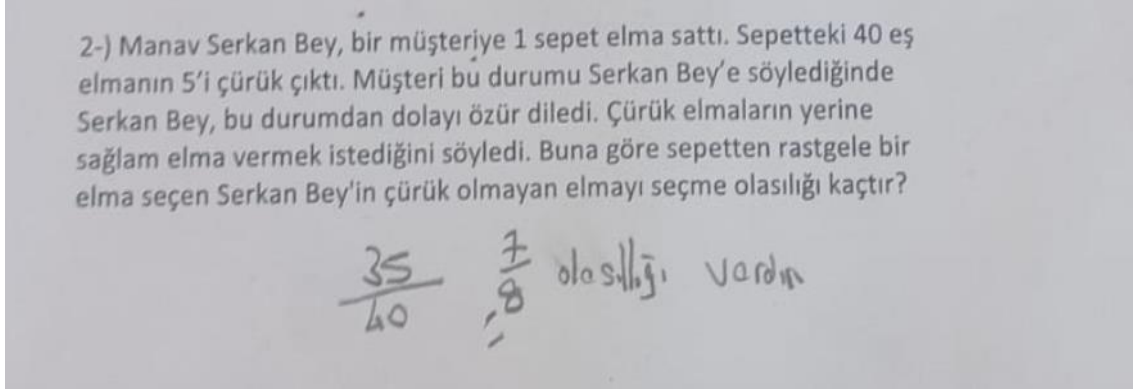 2-) Manav Serkan Bey, bir müşteriye 1 sepet elma sattı. Sepetteki 40 eş
elmanın 5'i çürük çıktı. Müşteri bu durumu Serkan Bey'e söylediğinde
Serkan Bey, bu durumdan dolayı özür diledi. Çürük elmaların yerine
sağlam elma vermek istediğini söyledi. Buna göre sepetten rastgele bir
elma seçen Serkan Bey'in çürük olmayan elmayı seçme olasılığı kaçtır?
35/40 7/8 olasıllığı vardır